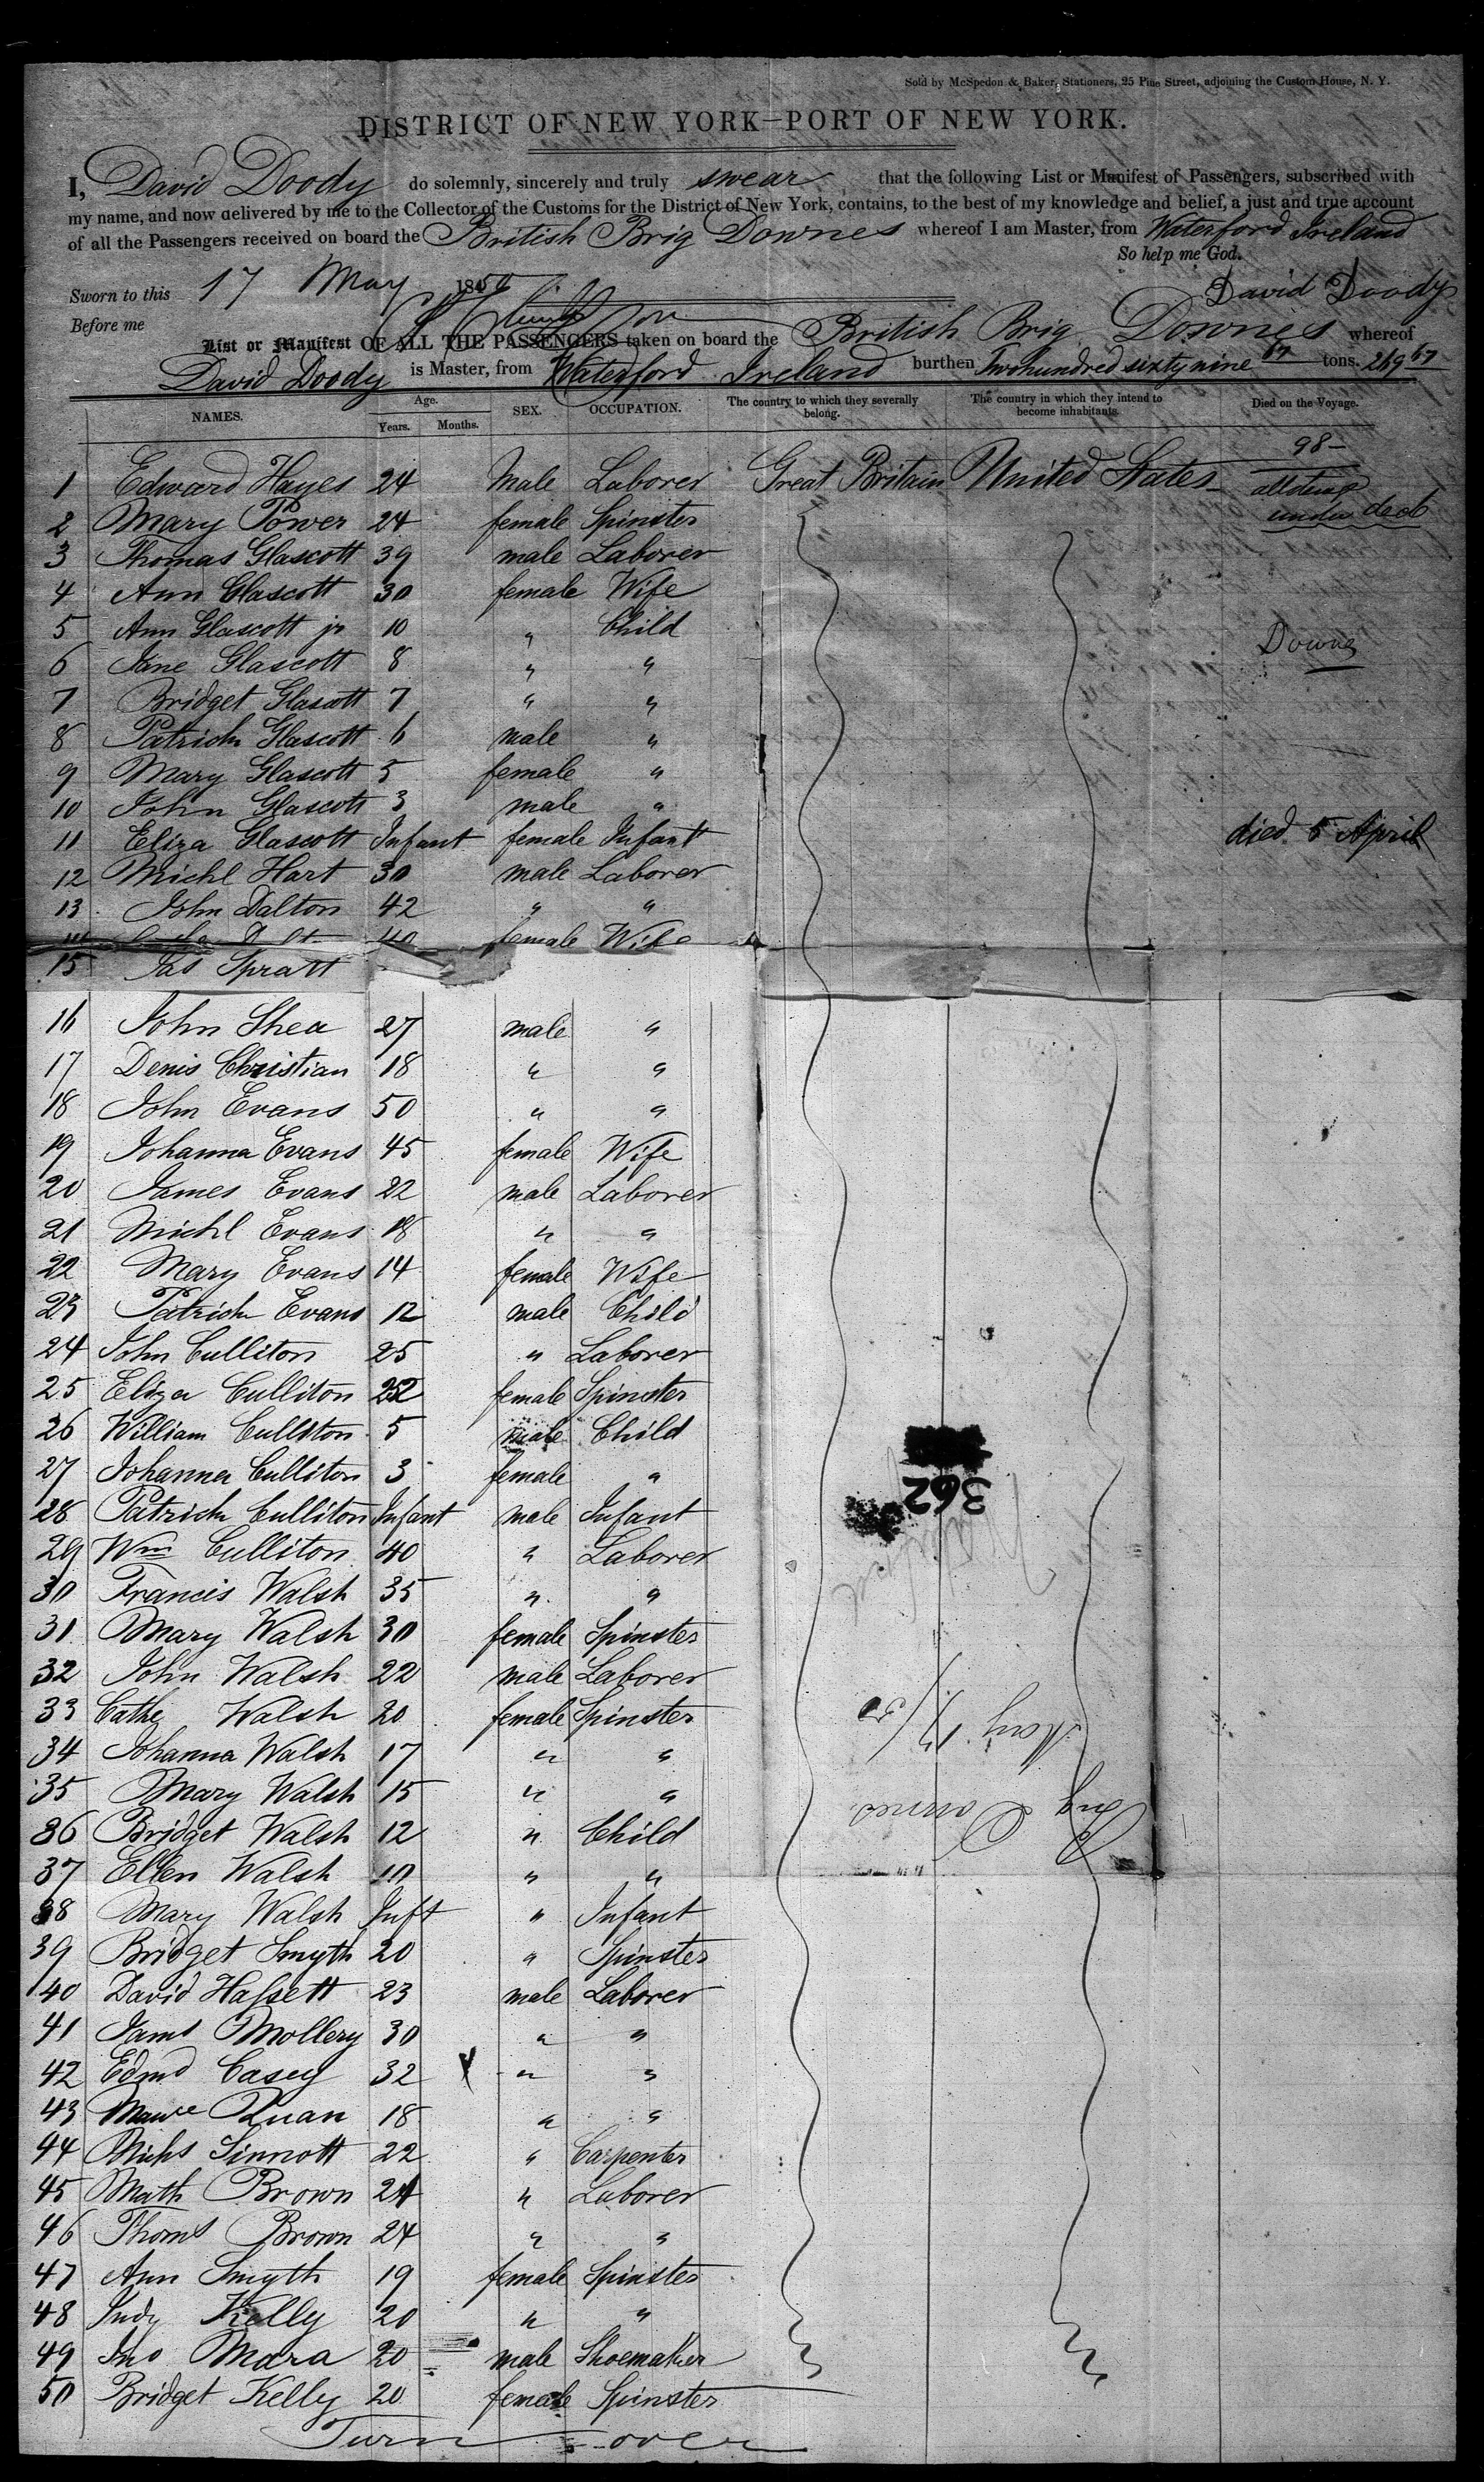 Sold by McSpedon & Baker, Stationers, 25 Pine Street, adjoining the Custom House, N. Y.
DISTRICT OF NEW YORK—PORT OF NEW YORK.
I, David Doody do solemnly, sincerely and truly swear that the following List or Manifest of Passengers, subscribed with
my name, and now delivered by me to the Collector of the Customs for the District of New York, contains, to the best of my knowledge and belief, a just and true account
of all the Passengers received on board the British Brig Downes whereof I am Master, from Waterford Ireland
So help me God.
Sworn to this 17 May 1850 David Doody
Before me
List or Manifest OF ALL THE PASSENGERS taken on board the British Brig Downes whereof
David Doody is Master, from Waterford Ireland burthen Two hundred sixty nine 67 tons. 269 67
NAMES. Age. Years. Months. SEX. OCCUPATION. The country to which they severally belong. The country in which they intend to become inhabitants. Died on the Voyage.
98-
1 Edward Hayes 24 Male Laborer Great Britain United States
2 Mary Power 24 female Spinster under deck
3 Thomas Glascott 39 male Laborer
4 Ann Glascott 30 female Wife
5 Ann Glascott jr 10 " Child Downes
6 Jane Glascott 8 " "
7 Bridget Glascott 7 " "
8 Patrick Glascott 6 male "
9 Mary Glascott 5 female "
10 John Glascott 3 male "
11 Eliza Glascott Infant female Infant died 5 April
12 Michl Hart 30 male Laborer
13 John Dalton 42 " "
14 40 female Wife
15 Jas Spratt
16 John Shea 27 male "
17 Denis Christian 18 " "
18 John Evans 50 " "
19 Johanna Evans 45 female Wife
20 James Evans 22 male Laborer
21 Michl Evans 18 " "
22 Mary Evans 14 female Wife
23 Patrick Evans 12 male Child
24 John Culliton 25 " Laborer
25 Eliza Culliton 22 female Spinster
26 William Culliton 5 male Child
27 Johanna Culliton 3 female "
28 Patrick Culliton Infant male Infant
362
29 Wm Culliton 40 " Laborer
30 Francis Walsh 35 " "
31 Mary Walsh 30 female Spinster
32 John Walsh 22 male Laborer
33 Cathe Walsh 20 female Spinster
May 17/50
34 Johanna Walsh 17 " "
35 Mary Walsh 15 " "
Brig Downes
36 Bridget Walsh 12 " Child
37 Ellen Walsh 10 " "
38 Mary Walsh Inft " Infant
39 Bridget Smyth 20 " Spinster
40 David Hassett 23 male Laborer
41 Jams Mollery 30 " "
42 Edmd Casey 32 " "
43 Mauce Ruan 18 " "
44 Michs Sinnott 22 " Carpenter
45 Math Brown 24 " Laborer
46 Thoms Brown 24 " "
47 Ann Smyth 19 female Spinster
48 Judy Kelly 20 " "
49 Jno Mara 20 male Shoemaker
50 Bridget Kelly 20 female Spinster
Turn over